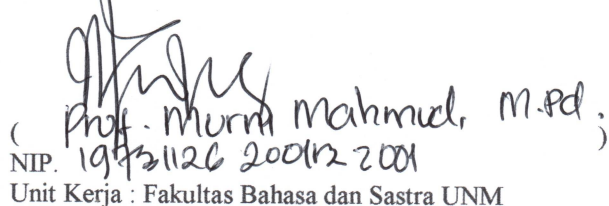 ( Prof. Murni Mahmud, M.Pd. )
NIP. 19731126 200112 2001
Unit Kerja : Fakultas Bahasa dan Sastra UNM